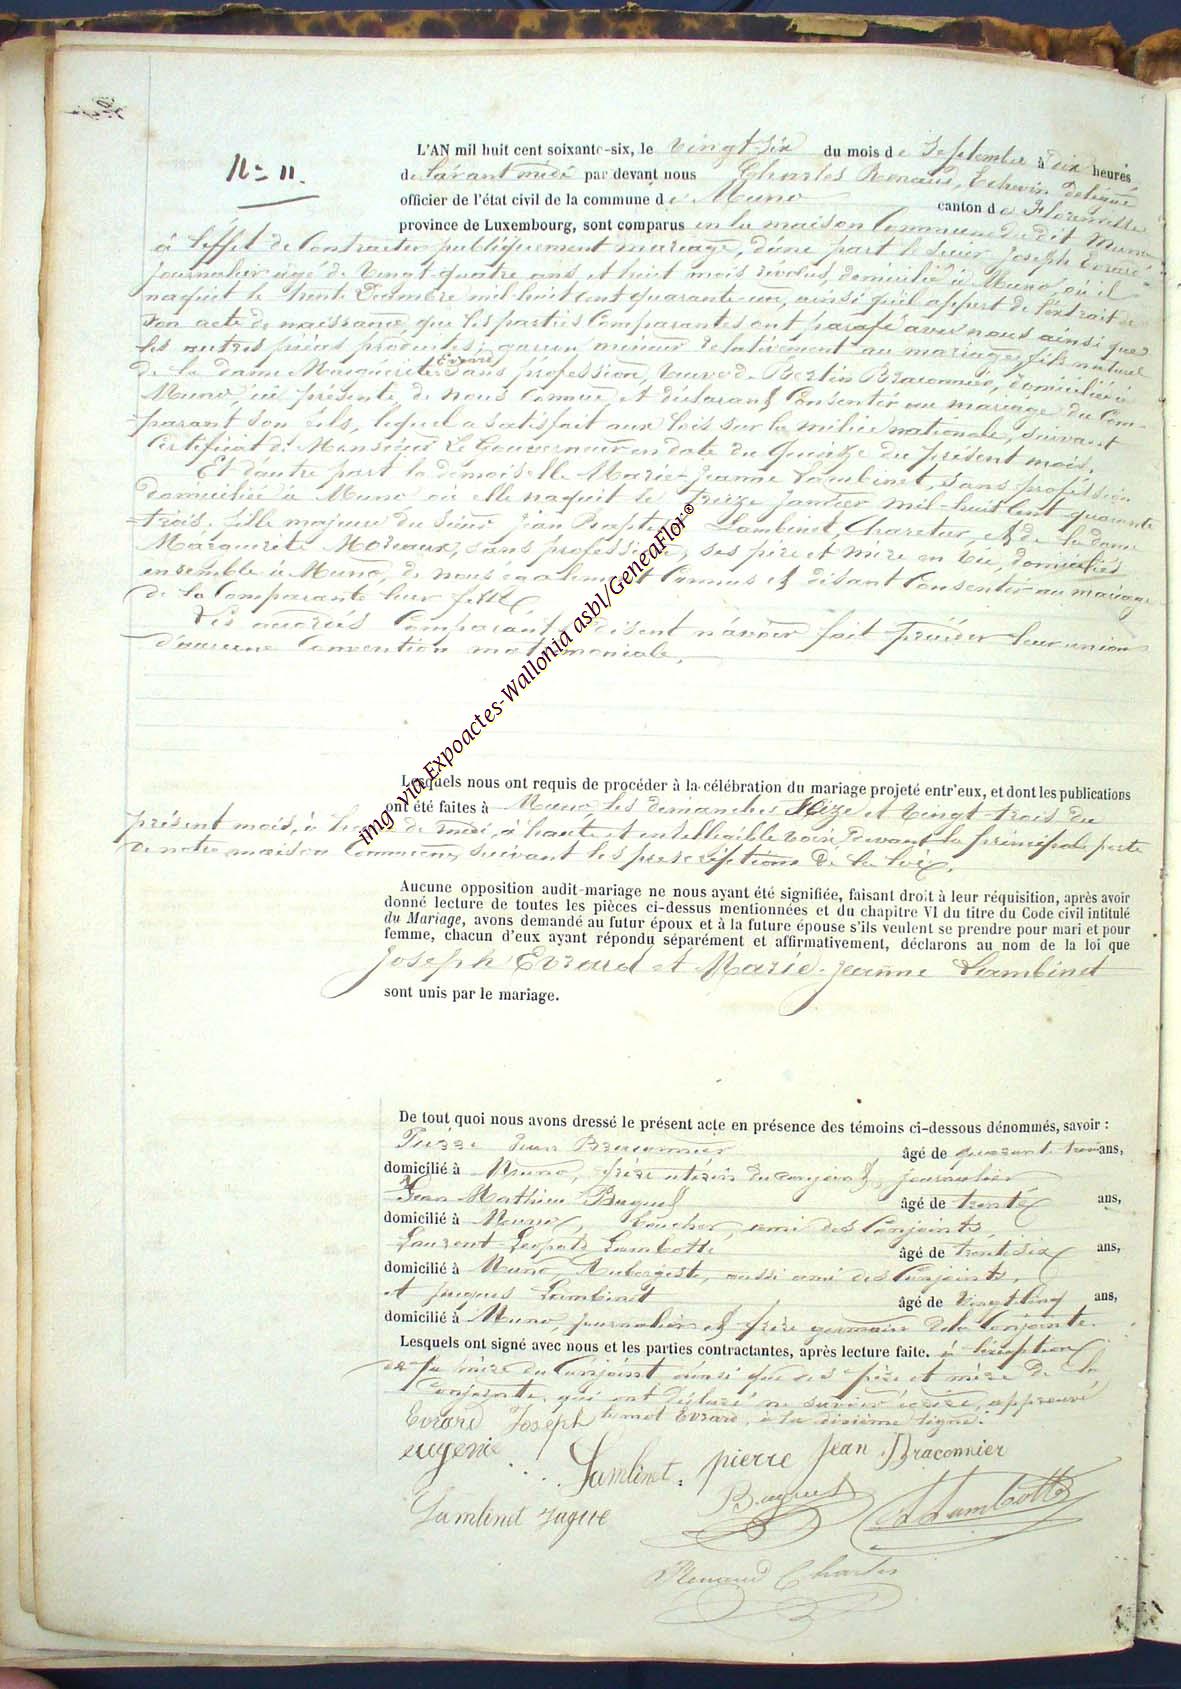 N° 11.
L'AN mil huit cent soixante-six, le vingt-six du mois de Septembre à dix heures
de l'avant midi par devant nous Charles Renaud, Echevin délégué
officier de l'état civil de la commune de Muno canton de Florenville
province de Luxembourg, sont comparus en la maison Commune du dit Muno
à l'effet de Contracter publiquement mariage, d'une part le sieur Joseph Evrard
journalier âgé de Vingt-quatre ans et huit mois révolus, domicilié à Muno où il
naquit le trente Décembre mil huit cent quarante-un, ainsi qu'il appert de l'extrait de
son acte de naissance que les parties Comparantes ont parafé avec nous ainsi que
les autres pièces produites; garçon mineur relativement au mariage, fils naturel
de la dame Marguerite Evrard sans profession, veuve de Bertin Braconnier, domiciliée à
Muno ici présente, de nous Connue, et déclarant Consentir au mariage du Com-
parant son fils, lequel a satisfait aux lois sur la milice nationale, suivant
Certificat de Monsieur Le Gouverneur en date du Quinze du présent mois.
Et d'autre part la demoiselle Marie-Jeanne Lambinet, sans profession
domiciliée à Muno où elle naquit le treize Janvier mil-huit cent quarante
trois, fille majeure du sieur Jean Baptiste Lambinet, Charetier, et de la dame
Marguerite Moreaux, sans profession, ses père et mère en vie, domiciliés
ensemble à Muno, de nous également Connus et disant Consentir au mariage
de la Comparante leur fille.
Les susdits Comparants disent n'avoir fait précéder leur union
d'aucune Convention matrimoniale.
Lesquels nous ont requis de procéder à la célébration du mariage projeté entr'eux, et dont les publications
ont été faites à Muno, les dimanches Seize et Vingt-trois du
présent mois, à heure de midi, à haute et intelligible voix devant la principale porte
de notre maison Commune, suivant les prescriptions de la loi.
Aucune opposition audit mariage ne nous ayant été signifiée, faisant droit à leur réquisition, après avoir
donné lecture de toutes les pièces ci-dessus mentionnées et du chapitre VI du titre du Code civil intitulé
du Mariage, avons demandé au futur époux et à la future épouse s'ils veulent se prendre pour mari et pour
femme, chacun d'eux ayant répondu séparément et affirmativement, déclarons au nom de la loi que
Joseph Evrard et Marie-Jeanne Lambinet
sont unis par le mariage.
De tout quoi nous avons dressé le présent acte en présence des témoins ci-dessous dénommés, savoir :
Pierre Jean Braconnier âgé de quarante trois ans,
domicilié à Muno, frère utérin du conjoint, journalier
Jean Mathieu Buguet âgé de trente ans,
domicilié à Muno, boucher, ami des Conjoints,
Laurent Léopold Lambotte âgé de trente six ans,
domicilié à Muno, Aubergiste, aussi ami des Conjoints,
et Jacques Lambinet âgé de Vingt-Cinq ans,
domicilié à Muno, journalier et frère germain de la Conjointe.
Lesquels ont signé avec nous et les parties contractantes, après lecture faite. à l'exception
de la mère du Conjoint ainsi que des père et mère de la
Conjointe, qui ont déclaré ne savoir écrire, approuvé
le mot Evrard, à la dixième ligne.
Evrard Joseph
eugenie Lambinet. pierre Jean Braconnier
Lambinet Jaque Buguet LLambotte
Renaud Charles
img via Expoactes-Wallonia asbl/GeneaFlor©